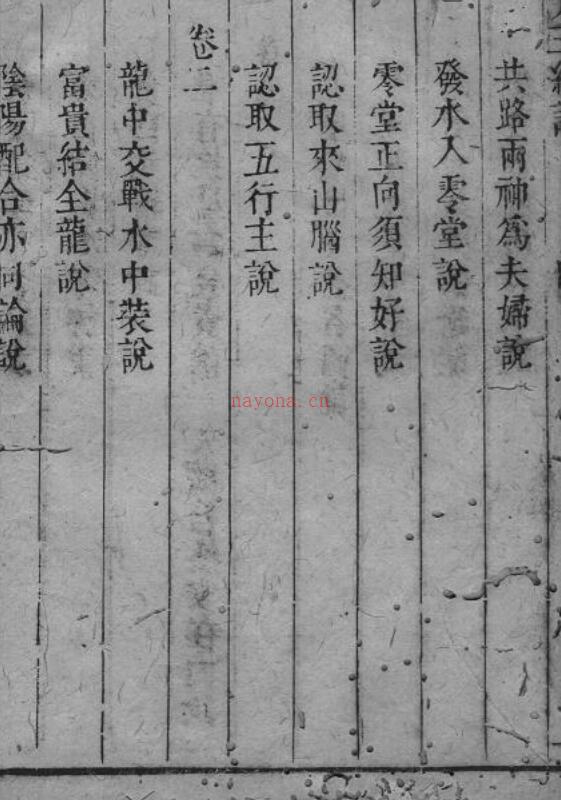 共路兩神爲夫婦說
發水入零堂說
零堂正向須知好說
認取來山腦說
認取五行主說
卷二
龍中交戰水中裝說
富貴結全龍說
陰陽配合亦同論說
nayona.cn